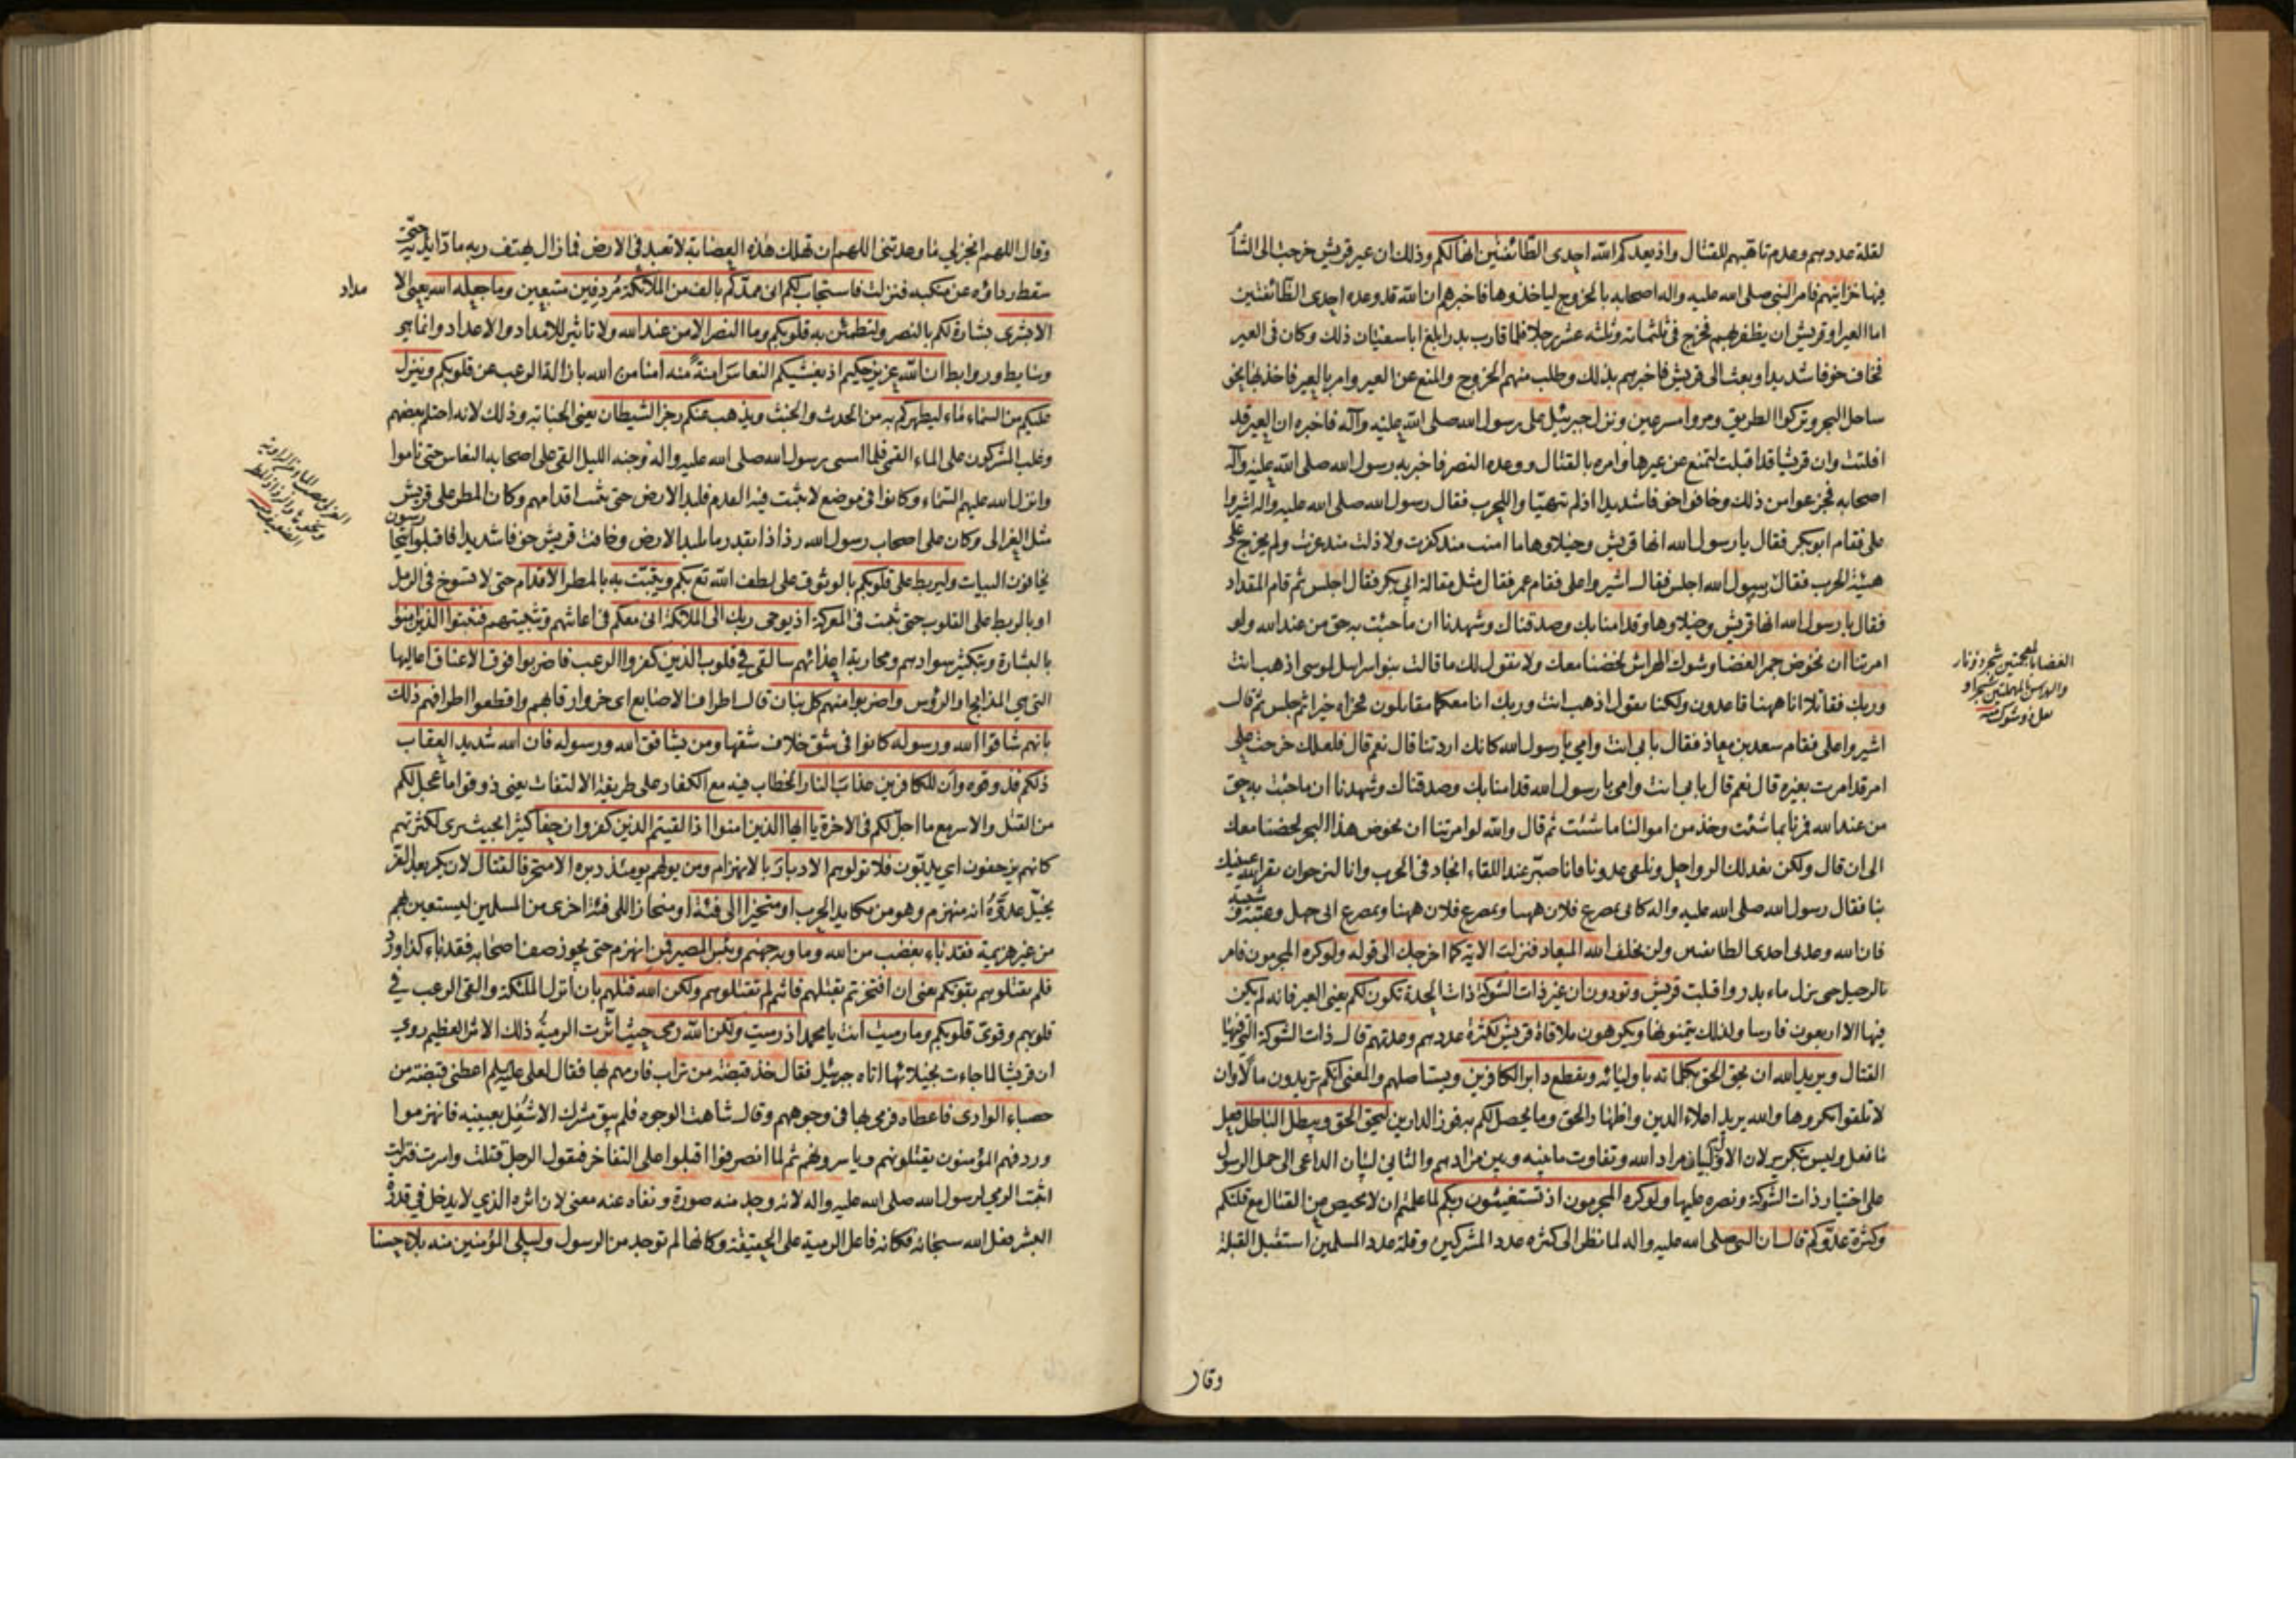 لقلة عددهم وعدم تاهبهم للقتال واذ يعدكم الله احدى الطائفتين انها لكم وذلك ان عير قريش خرجت الى الشام
فيها خزاينهم فامر النبى صلى الله عليه واله اصحابه بالخروج لياخذوها فاخبرهم ان الله قد وعده احدى الطائفتين
اما العير او قريش ان يظفر بهم فخرج فى ثلثمائه وثلثه عشر رجلا فلما قارب بدرا بلغ اباسفيان ذلك وكان فى العير
فخاف خوفا شديدا وبعث الى قريش فاخبرهم بذلك وطلب منهم الخروج والمنع عن العير وامر بالعير فاخذ بها نحو
ساحل البحر وتركوا الطريق ومروا مسرعين ونزل جبرئيل على رسول الله صلى الله عليه وآله فاخبره ان العير قد
افلتت وان قريشا قد اقبلت لتمنع عن عيرها وامره بالقتال ووعده النصر فاخبر به رسول الله صلى الله عليه وآله
اصحابه فجزعوا من ذلك وخافوا خوفا شديدا اذ لم يتهيئوا للحرب فقال رسول الله صلى الله عليه واله اشيروا
على فقام ابوبكر فقال يا رسول الله انها قريش وخيلاؤها ما امنت منذ كفرت ولا ذلت منذ عزت ولم يخرج على
هيئة الحرب فقال رسول الله اجلس فقال اشيروا على فقام عمر فقال مثل مقالة ابى بكر فقال اجلس ثم قام المقداد
فقال يا رسول الله انها قريش وخيلاؤها وقد امنا بك وصدقناك وشهدنا ان ما جئت به حق من عند الله ولو
امرتنا ان نخوض جمر الغضا وشوك الهراس لخضنا معك ولا نقول لك ما قالت بنو اسرائيل لموسى اذهب انت
وربك فقاتلا انا ههنا قاعدون ولكنا نقول اذهب انت وربك انا معكما مقاتلون فجزاه خيرا ثم جلس ثم قال
اشيروا على فقام سعد بن معاذ فقال بابى انت وامى يا رسول الله كانك اردتنا قال نعم قال فلعلك خرجت على
امر قد امرت بغيره قال نعم قال بابى انت وامى يا رسول الله قد امنا بك وصدقناك وشهدنا ان ما جئت به حق
من عند الله فمرنا بما شئت وخذ من اموالنا ما شئت ثم قال والله لو امرتنا ان نخوض هذا البحر لخضنا معك
الى ان قال ولكن نعد لك الرواحل ونلقى عدونا فانا صبر عند اللقاء انجاد فى الحرب وانا لنرجو ان يقر الله عينيك
بنا فقال رسول الله صلى الله عليه واله كانى بمصرع فلان ههنا وبمصرع فلان ههنا وبمصرع ابى جهل وعتبة وشيبه
فان الله وعدنى احدى الطائفتين ولن يخلف الله الميعاد فنزلت الاية كما اخرجك الى قوله ولو كره المجرمون فامر
بالرحيل حتى نزل ماء بدر واقبلت قريش وتودون ان غير ذات الشوكة ذات الحدة تكون لكم يعنى العير فانه لم يكن
فيها الا اربعون فارسا ولذلك يتمنونها ويكرهون ملاقاة قريش لكثرة عددهم وعدتهم قال ذات الشوكة التى فيها
القتال ويريد الله ان يحق الحق بكلماته باوليائه ويقطع دابر الكافرين ويستاصلهم والمعنى انكم تريدون مالا وان
لا تلقوا مكروها والله يريد اعلاء الدين واظهار الحق وما يحصل لكم به فوز الدارين ليحق الحق ويبطل الباطل فعل
ما فعل وليس بتكرير لان الاول لبيان مراد الله وتفاوت ما بينه وبين مرادهم والثانى لبيان الداعى الى حمل الرسول
على اختيار ذات الشوكة ونصره عليها ولو كره المجرمون اذ تستغيثون ربكم لما علمتم ان لا محيص من القتال مع قلتكم
وكثرة عدوكم قال ان النبى صلى الله عليه واله لما نظر الى كثرة عدد المشركين وقلة عدد المسلمين استقبل القبلة
وقال
الغضا بالمعجمتين شجر ذو نار
وقال اللهم انجز لى ما وعدتنى اللهم ان تهلك هذه العصابة لا تعبد فى الارض فما زال يهتف ربه مادا يديه حتى
سقط رداؤه عن منكبيه فنزلت فاستجاب لكم انى ممدكم بالف من الملائكة مردفين متبعين وما جعله الله يعنى الا
مداد
الا بشرى بشارة لكم بالنصر ولتطمئن به قلوبكم وما النصر الا من عند الله ولا تاثير للامداد والاعداد وانما هى
وسايط وروابط ان الله عزيز حكيم اذ يغشيكم النعاس امنة منه امنا من الله بازالة الرعب عن قلوبكم وينزل
عليكم من السماء ماء ليطهركم به من الحدث والخبث ويذهب عنكم رجز الشيطان يعنى الجنابه وذلك لانه احتلم بعضهم
وغلب المشركون على الماء القمى فلما امسى رسول الله صلى الله عليه واله وجنه الليل القى على اصحابه النعاس حتى ناموا
وانزل الله عليهم السماء وكانوا فى موضع لا يثبت فيه القدم فلبد الارض حتى يثبت اقدامهم وكان المطر على قريش
مثل العزالى وكان على اصحاب رسول الله رذاذا بقدر ما يلبد الارض وخافت قريش خوفا شديدا فاقبلوا يتحارسون
يخافون البيات وليربط على قلوبكم بالوثوق على لطف الله تع بكم ويثبت به بالمطر الاقدام حتى لا تسوخ فى الرمل
او بالربط على القلوب حتى يثبت فى المعركة اذ يوحى ربك الى الملائكة انى معكم فى اعانتهم وتثبيتهم فثبتوا الذين امنوا
بالبشارة وبتكثير سوادهم ومحاربة اعدائهم سالقى فى قلوب الذين كفروا الرعب فاضربوا فوق الاعناق اعاليها
التى هى المذابح او الرؤس واضربوا منهم كل بنان قال اطراف الاصابع اى حزوا رقابهم واقطعوا اطرافهم ذلك
بانهم شاقوا الله ورسوله كانوا فى شق خلاف شقهما ومن يشاقق الله ورسوله فان الله شديد العقاب
ذلكم فذوقوه وان للكافرين عذاب النار الخطاب فيه مع الكفار على طريقة الالتفات يعنى ذوقوا ما عجل لكم
من القتل والاسر مع ما اجل لكم فى الاخرة يا ايها الذين امنوا اذا لقيتم الذين كفروا زحفا كثيرا بحيث يرى لكثرتهم
كانهم يزحفون اى يدبون فلا تولوهم الادبار بالانهزام ومن يولهم يومئذ دبره الا متحرفا لقتال لان يكر بعد الفر
يخيل عدوه انه منهزم وهو من مكايد الحرب او متحيزا الى فئة او منحازا الى فئة اخرى من المسلمين ليستعين بهم
من غير هزيمة فقد باء بغضب من الله وماويه جهنم وبئس المصير فمن انهزم حتى يجوز صف اصحابه فقد باء كذا ورد
فلم تقتلوهم بقوتكم يعنى ان افتخرتم بقتلهم فانتم لم تقتلوهم ولكن الله قتلهم بان انزل الملئكة والقى الرعب فى
قلوبهم وقوى قلوبكم وما رميت انت يا محمد اذ رميت ولكن الله رمى حيث اثرت الرمية ذلك الاثر العظيم روى
ان قريشا لما جاءت بخيلائها اتاه جبرئيل فقال خذ قبضة من تراب فارمهم بها فقال لعلى عليه السلم اعطنى قبضة من
حصباء الوادى فاعطاه فرمى بها فى وجوههم وقال شاهت الوجوه فلم يبق مشرك الا شغل بعينيه فانهزموا
وردفهم المؤمنون يقتلونهم وياسرونهم ثم لما انصرفوا اقبلوا على التفاخر فيقول الرجل قتلت واسرت فنزلت
اثبت الرمى لرسول الله صلى الله عليه واله لانه وجد منه صورة ونفاه عنه معنى لان اثره الذى لا يدخل فى قدرة
البشر فعل الله سبحانه فكانه فاعل الرمية على الحقيقة وكانها لم توجد من الرسول وليبلى المؤمنين منه بلاء حسنا